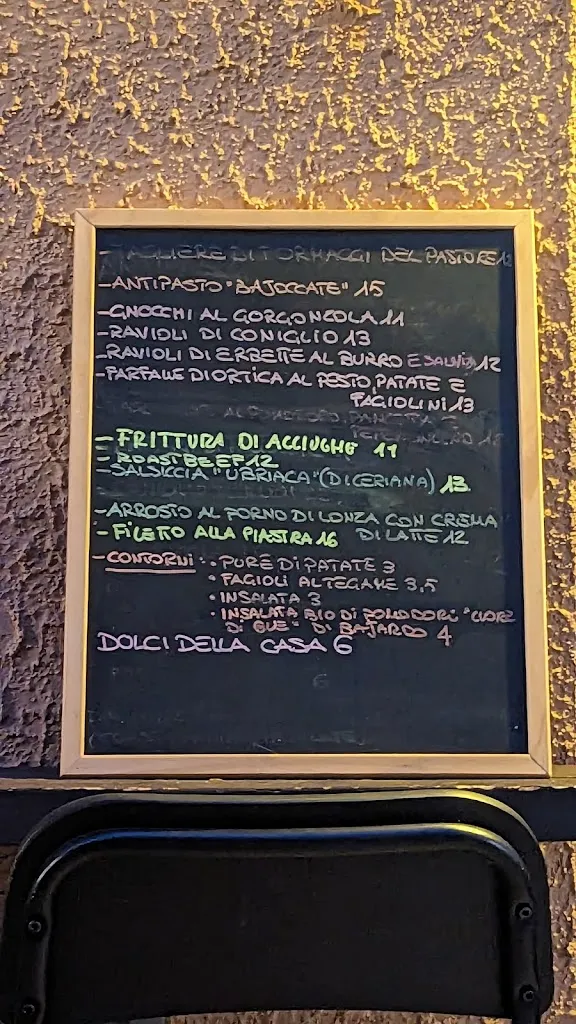 - TAGLIERE DI FORMAGGI DEL PASTORE 12
- ANTIPASTO "BAJOCCATE" 15
- GNOCCHI AL GORGONZOLA 11
- RAVIOLI DI CONIGLIO 13
- RAVIOLI DI ERBETTE AL BURRO E SALVIA 12
- FARFALLE DI ORTICA AL PESTO, PATATE E
FAGIOLINI 13
- FRITTURA DI ACCIUGHE 11
- ROASTBEEF 12
- SALSICCIA "UBRIACA" (DI CERIANA) 13
- ARROSTO AL FORNO DI LONZA CON CREMA
DI LATTE 12
- FILETTO ALLA PIASTRA 16
- CONTORNI: • PURE DI PATATE 3
• FAGIOLI AL TEGAME 3,5
• INSALATA 3
• INSALATA BIO DI POMODORI "CUORE
DI BUE" DI BAJARDO 4
DOLCI DELLA CASA 6